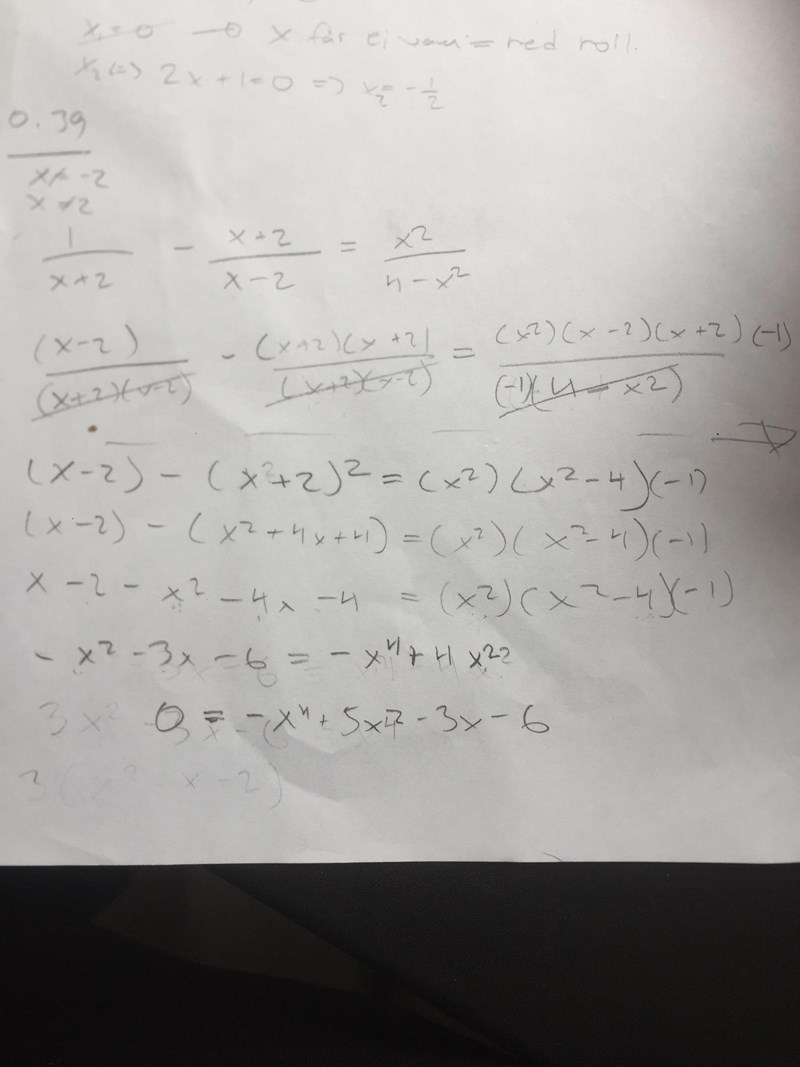 x₁=0 → x får ej vara = red roll.
x₂ <=> 2x+1=0 => x₂= -1/2
0.39
x≠-2
x≠2
1/(x+2) - (x+2)/(x-2) = x²/(4-x²)
(x-2)/((x+2)(x-2)) - (x+2)(x+2)/((x+2)(x-2)) = (x²)(x-2)(x+2)(-1)/((-1)(4-x2)) →
(x-2) - (x²+2)² = (x²)(x²-4)(-1)
(x-2) - (x²+4x+4) = (x²)(x²-4)(-1)
x-2-x²-4x-4 = (x²)(x²-4)(-1)
-x²-3x-6 = -x⁴+4x²
3x² 0 = -x⁴+5x²-3x-6
3(x² x-2)